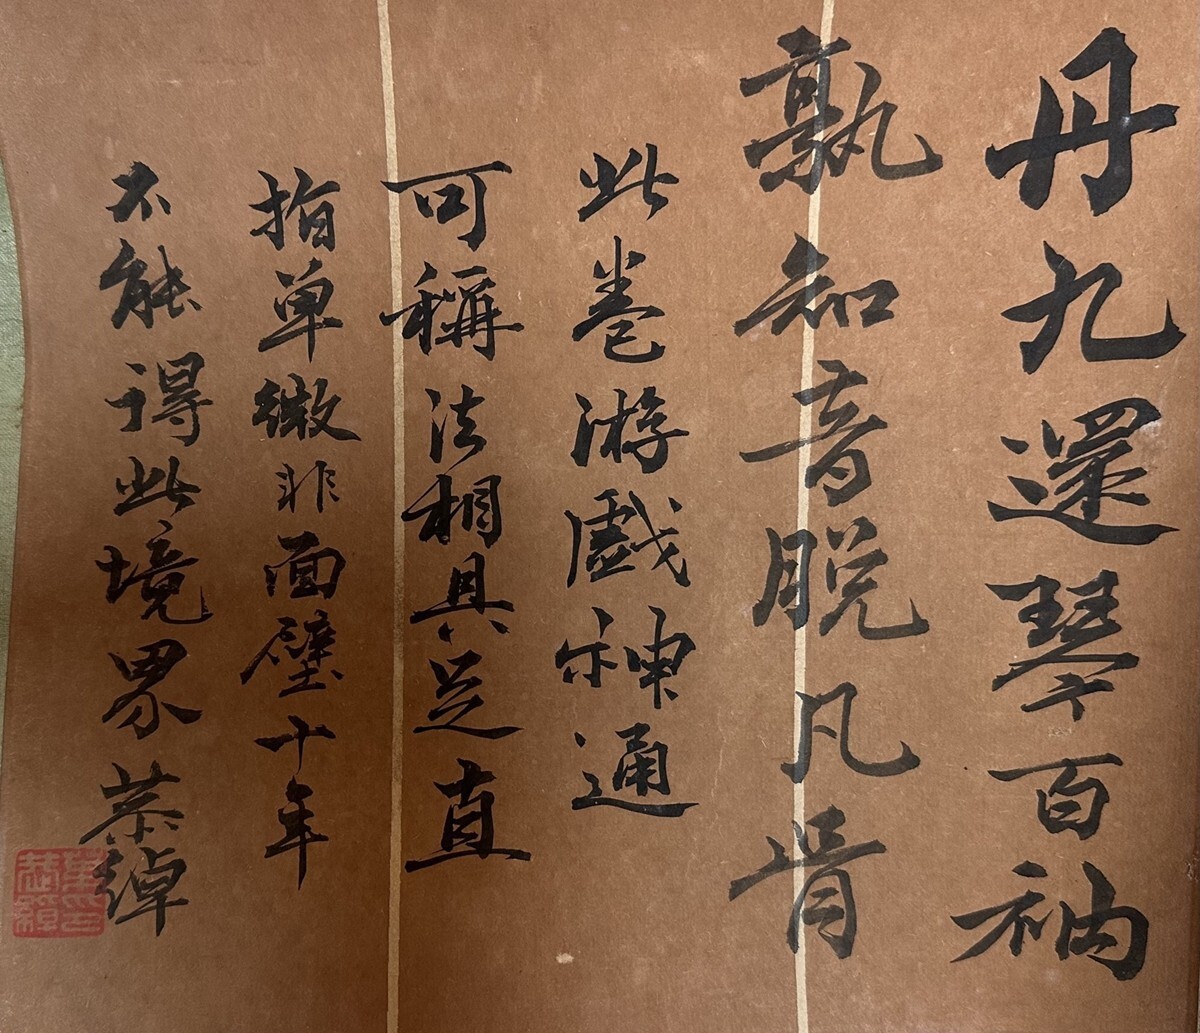 丹九還琴百衲
孰知音脱凡骨
此卷游戲神通
可稱法相具足直
指單微非面壁十年
不能得此境界恭綽
葉恭綽印